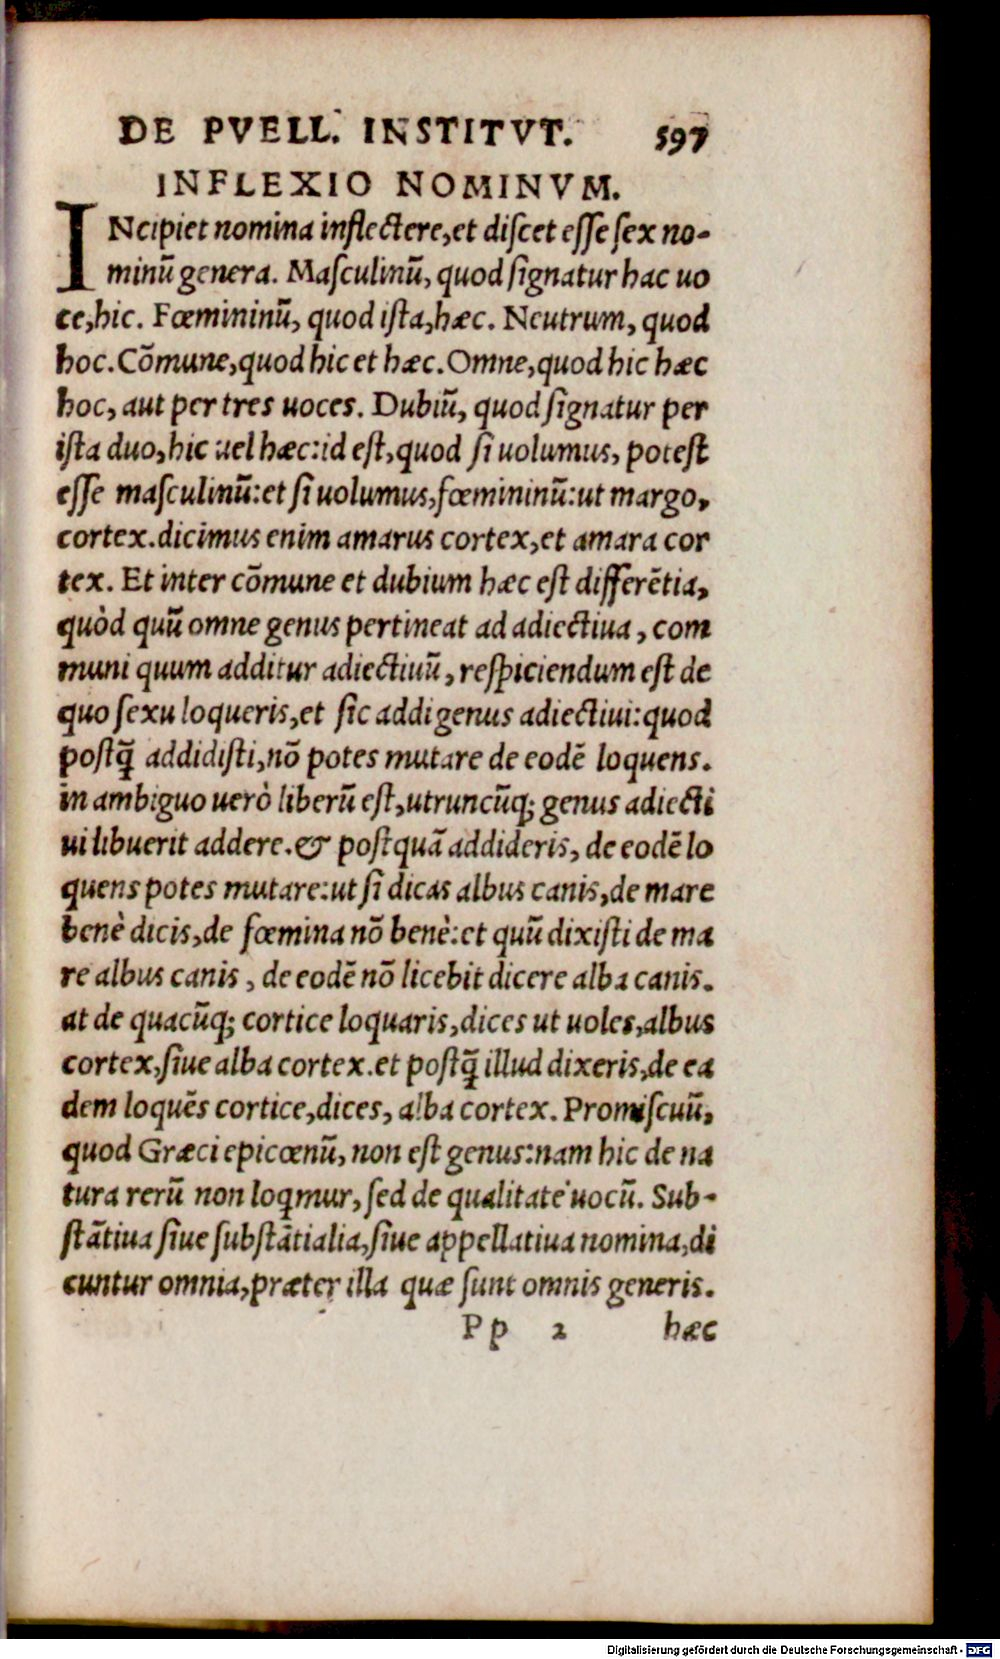 DE PVELL. INSTITVT. 597
INFLEXIO NOMINVM.
INcipiet nomina inflectere,et diſcet eſſe ſex no-
minū genera. Maſculinū, quod ſignatur hac uo
ce,hic. Fœmininū, quod iſta,hæc. Neutrum, quod
hoc. Cōmune,quod hic et hæc. Omne,quod hic hæc
hoc, aut per tres uoces. Dubiū, quod ſignatur per
iſta duo,hic uel hæc:id eſt,quod ſi uolumus, poteſt
eſſe maſculinū:et ſi uolumus,fœmininū:ut margo,
cortex.dicimus enim amarus cortex,et amara cor
tex. Et inter cōmune et dubium hæc eſt differētia,
quòd quū omne genus pertineat ad adiectiua, com
muni quum additur adiectiuū, reſpiciendum eſt de
quo ſexu loqueris,et ſic addi genus adiectiui:quod
poſtq̃ addidiſti,nō potes mutare de eodē loquens.
in ambiguo uerò liberū eſt,utruncūq; genus adiecti
ui libuerit addere.& poſtquā addideris, de eodē lo
quens potes mutare:ut ſi dicas albus canis,de mare
benè dicis,de fœmina nō benè:et quū dixiſti de ma
re albus canis, de eodē nō licebit dicere alba canis.
at de quacūq; cortice loquaris,dices ut uoles,albus
cortex,ſiue alba cortex.et poſtq̃ illud dixeris,de ea
dem loquēs cortice,dices, alba cortex. Promiſcuū,
quod Græci epicœnū, non eſt genus:nam hic de na
tura rerū non loq̃mur, ſed de qualitate uocū. Sub-
ſtātiua ſiue ſubſtātialia,ſiue appellatiua nomina,di
cuntur omnia,præter illa quæ ſunt omnis generis.
Pp 2 hæc
Digitalisierung gefördert durch die Deutsche Forschungsgemeinschaft - DFG